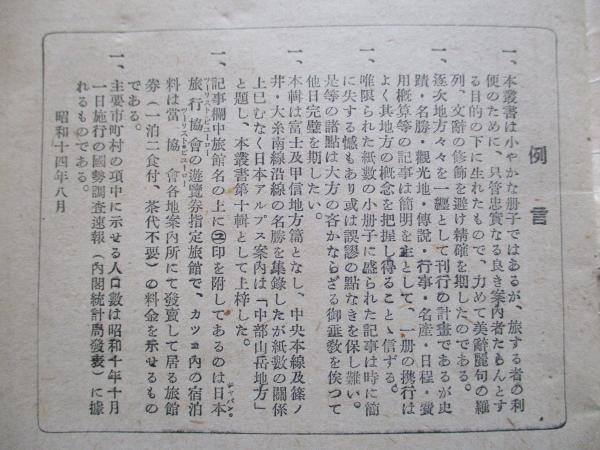 例言
一、本叢書は小やかな册子ではあるが、旅する者の利
便のために、只管忠實なる良き案内者たらんとす
る目的の下に生れたもので、力めて美辭麗句の羅
列、文辭の修飾を避け精確を期したのである。
一、逐次地方々々を一纒として刊行の計畫であるが史
蹟・名勝・觀光地・傳說・行事・名産・日程・費
用概算等の記事は簡明を主として、一册の携行は
よく其地方の概念を把握し得ることゝ信ずる。
唯限られた紙數の小册子に盛られた記事は時に簡
に失する憾もあり或は誤謬の點なきを保し難い。
是等の諸點は大方の吝かならざる御垂敎を俟つて
他日完璧を期したい。
一、本輯は富士及甲信地方篇となし、中央本線及篠ノ
井・大糸南線沿線の名勝を集錄したが紙數の關係
上已むなく日本アルプス案内は「中部山岳地方」
と題し、本叢書第十輯として上梓した。
一、記事欄中旅館名の上に㋥印を附してあるのは日本
旅行協會の遊覽券指定旅館で、カツコ内の宿泊
料は當協會各地案内所にて發賣して居る旅館
券（一泊二食付、茶代不要）の料金を示せるもの
である。
一、主要市町村の項中に示せる人口數は昭和十年十月
一日施行の國勢調査速報（内閣統計局發表）に據
れるものである。
昭和十四年八月